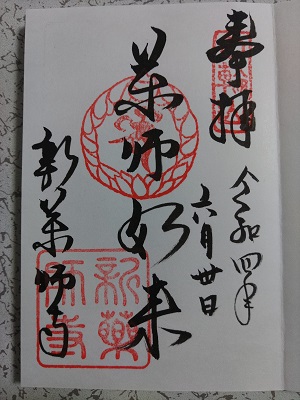 奉拝
令和四年
六月廿日
薬師如来
新薬師寺
新薬
師寺